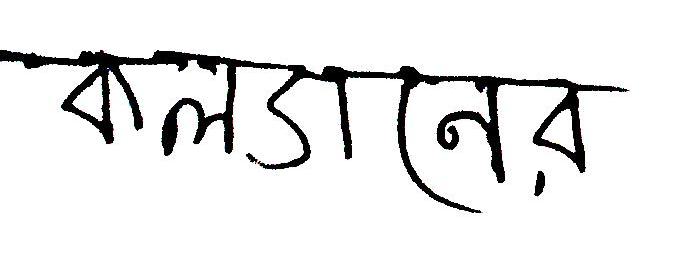 কলডানের